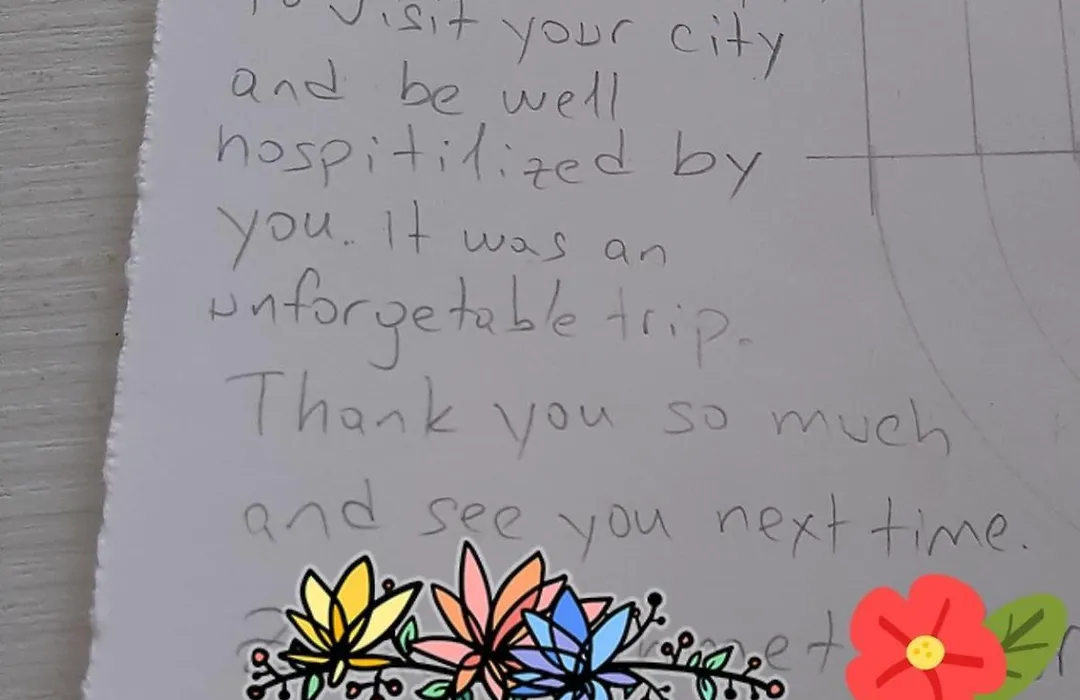 to visit your city
and be well
hospitilized by
you. It was an
unforgetable trip.
Thank you so much
and see you next time.